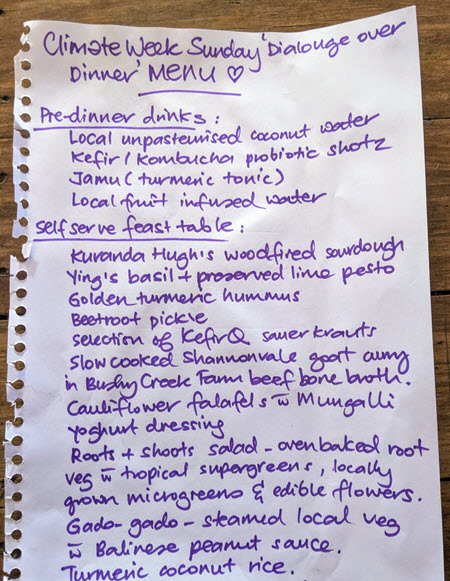 Climate Week Sunday 'Dialouge over
Dinner' MENU ♡
Pre-dinner drinks :
Local unpasteurised coconut water
Kefir / Kombucha probiotic shotz
Jamu (turmeric tonic)
Local fruit infused water
Self serve feast table :
Kuranda Hugh's woodfired sourdough
Ying's basil + preserved lime pesto
Golden turmeric hummus
Beetroot pickle
selection of KefirQ sauerkrauts
Slow cooked Shannonvale goat curry
in Bushy Creek Farm beef bone broth.
Cauliflower falafels w̄ Mungalli
yoghurt dressing
Roots + shoots salad - ovenbaked root
veg w̄ tropical supergreens, locally
grown microgreens & edible flowers.
Gado-gado - steamed local veg
w̄ Balinese peanut sauce.
Turmeric coconut rice.